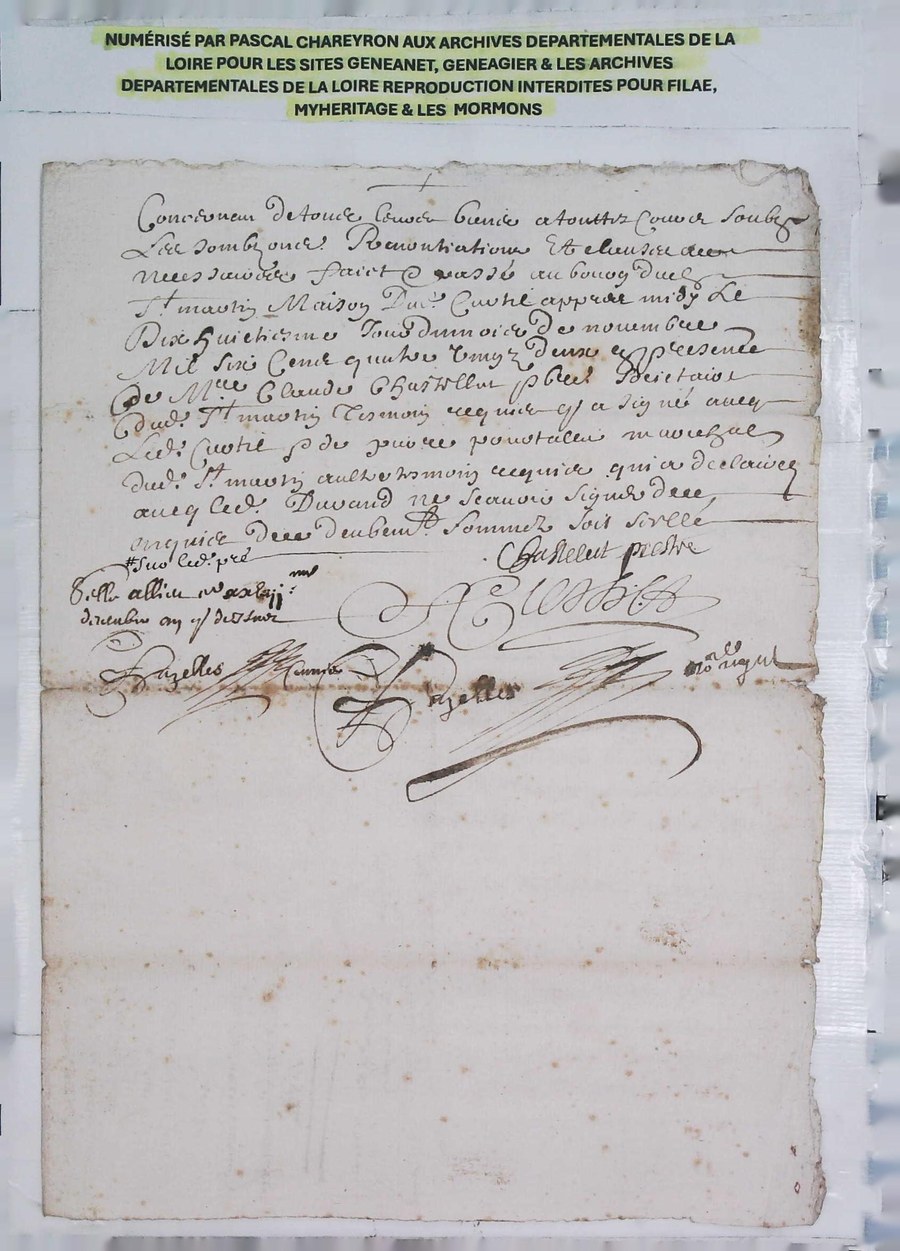 NUMÉRISÉ PAR PASCAL CHAREYRON AUX ARCHIVES DEPARTEMENTALES DE LA
LOIRE POUR LES SITES GENEANET, GENEAGIER & LES ARCHIVES
DEPARTEMENTALES DE LA LOIRE REPRODUCTION INTERDITES POUR FILAE,
MYHERITAGE & LES MORMONS
Concernant de tous leurs biens a touttes Cours Soubz
Les sombzonces Renontiations Et clauses
necessaires faict & passé au bourg dud
St martin Maison Dud. Curtil appres midy Le
Dix huictiesme Jour du mois de novembre
Mil Six Cens quatre vingz deux presence
de Mre Claude Chastellut pbre
dud. St martin Tesmoin requis qui a signé avecq
Led. Curtil marechal
dud. St martin aultre tesmoin requis qui a declairé
avecq led. Durand ne scavoir signer de ce
enquis deubemt Sommez Soit Scellé
sur led. pré
. Chastelut prestre
decembre
Curtil
Dazelles Commis Dazelles no.re royal